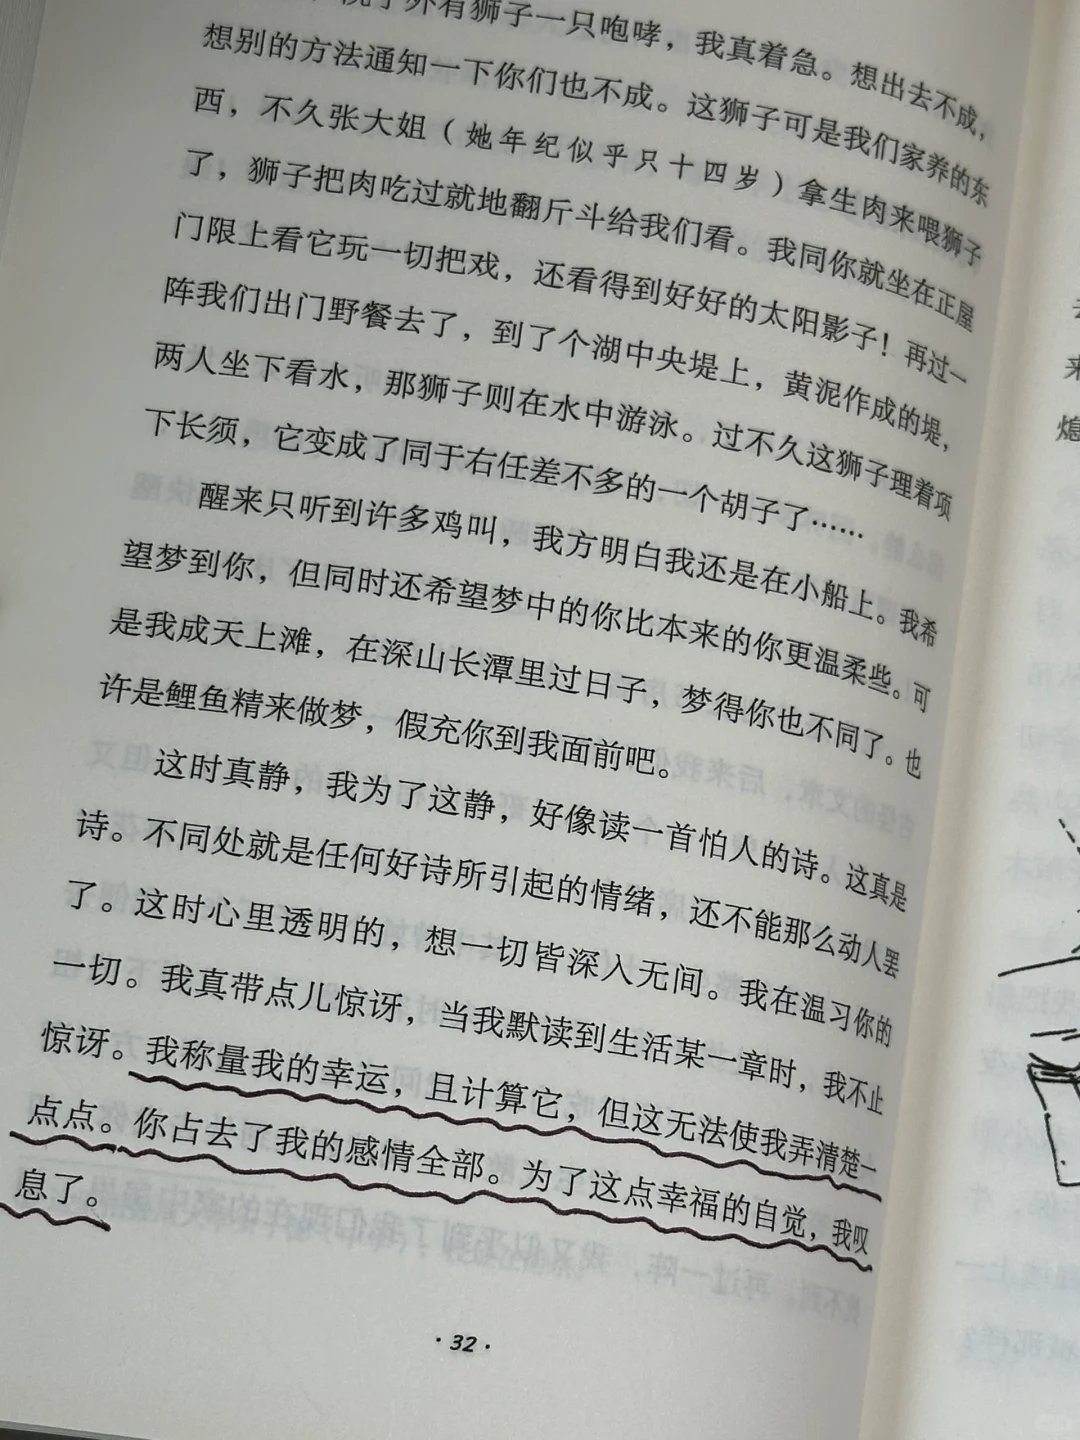 外有狮子一只咆哮，我真着急。想出去不成，
想别的方法通知一下你们也不成。这狮子可是我们家养的东
西，不久张大姐（她年纪似乎只十四岁）拿生肉来喂狮子
了，狮子把肉吃过就地翻斤斗给我们看。我同你就坐在正屋
门限上看它玩一切把戏，还看得到好好的太阳影子！再过一
阵我们出门野餐去了，到了个湖中央堤上，黄泥作成的堤，
两人坐下看水，那狮子则在水中游泳。过不久这狮子理着项
下长须，它变成了同于右任差不多的一个胡子了……
醒来只听到许多鸡叫，我方明白我还是在小船上。我希
望梦到你，但同时还希望梦中的你比本来的你更温柔些。可
是我成天上滩，在深山长潭里过日子，梦得你也不同了。也
许是鲤鱼精来做梦，假充你到我面前吧。
这时真静，我为了这静，好像读一首怕人的诗。这真是
诗。不同处就是任何好诗所引起的情绪，还不能那么动人罢
了。这时心里透明的，想一切皆深入无间。我在温习你的
一切。我真带点儿惊讶，当我默读到生活某一章时，我不止
惊讶。我称量我的幸运，且计算它，但这无法使我弄清楚一
点点。你占去了我的感情全部。为了这点幸福的自觉，我叹
息了。
·32·